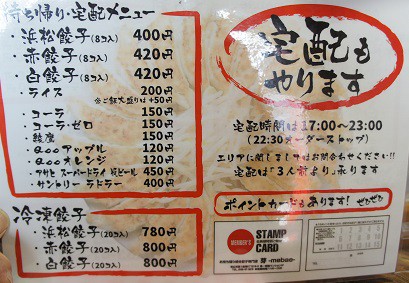 持ち帰り・宅配メニュー
・浜松餃子(8コ入) 400円
・赤餃子(8コ入) 420円
・白餃子(8コ入) 420円
・ライス 200円
※ご飯大盛りは+50円
・コーラ 150円
・コーラ・ゼロ 150円
・綾鷹 150円
・Qoo アップル 120円
・Qoo オレンジ 120円
・アサヒ スーパードライ 瓶ビール 450円
・サントリー ラドラー 400円
冷凍餃子
・浜松餃子(20コ入) 780円
・赤餃子(20コ入) 800円
・白餃子(20コ入) 800円
宅配も
やります
宅配時間は17:00～23:00
(22:30オーダーストップ)
エリアに関しましてはお問合わせください!!
宅配は「3人前より」承ります
ポイントカードもあります! ぜひぜひ
MEMBER'S
STAMP
CARD
芽 -mebae-